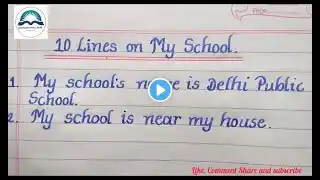 10 Lines on My School.
1. My school's name is Delhi Public
School.
2. My school is near my house.
Like, Comment Share and subscribe